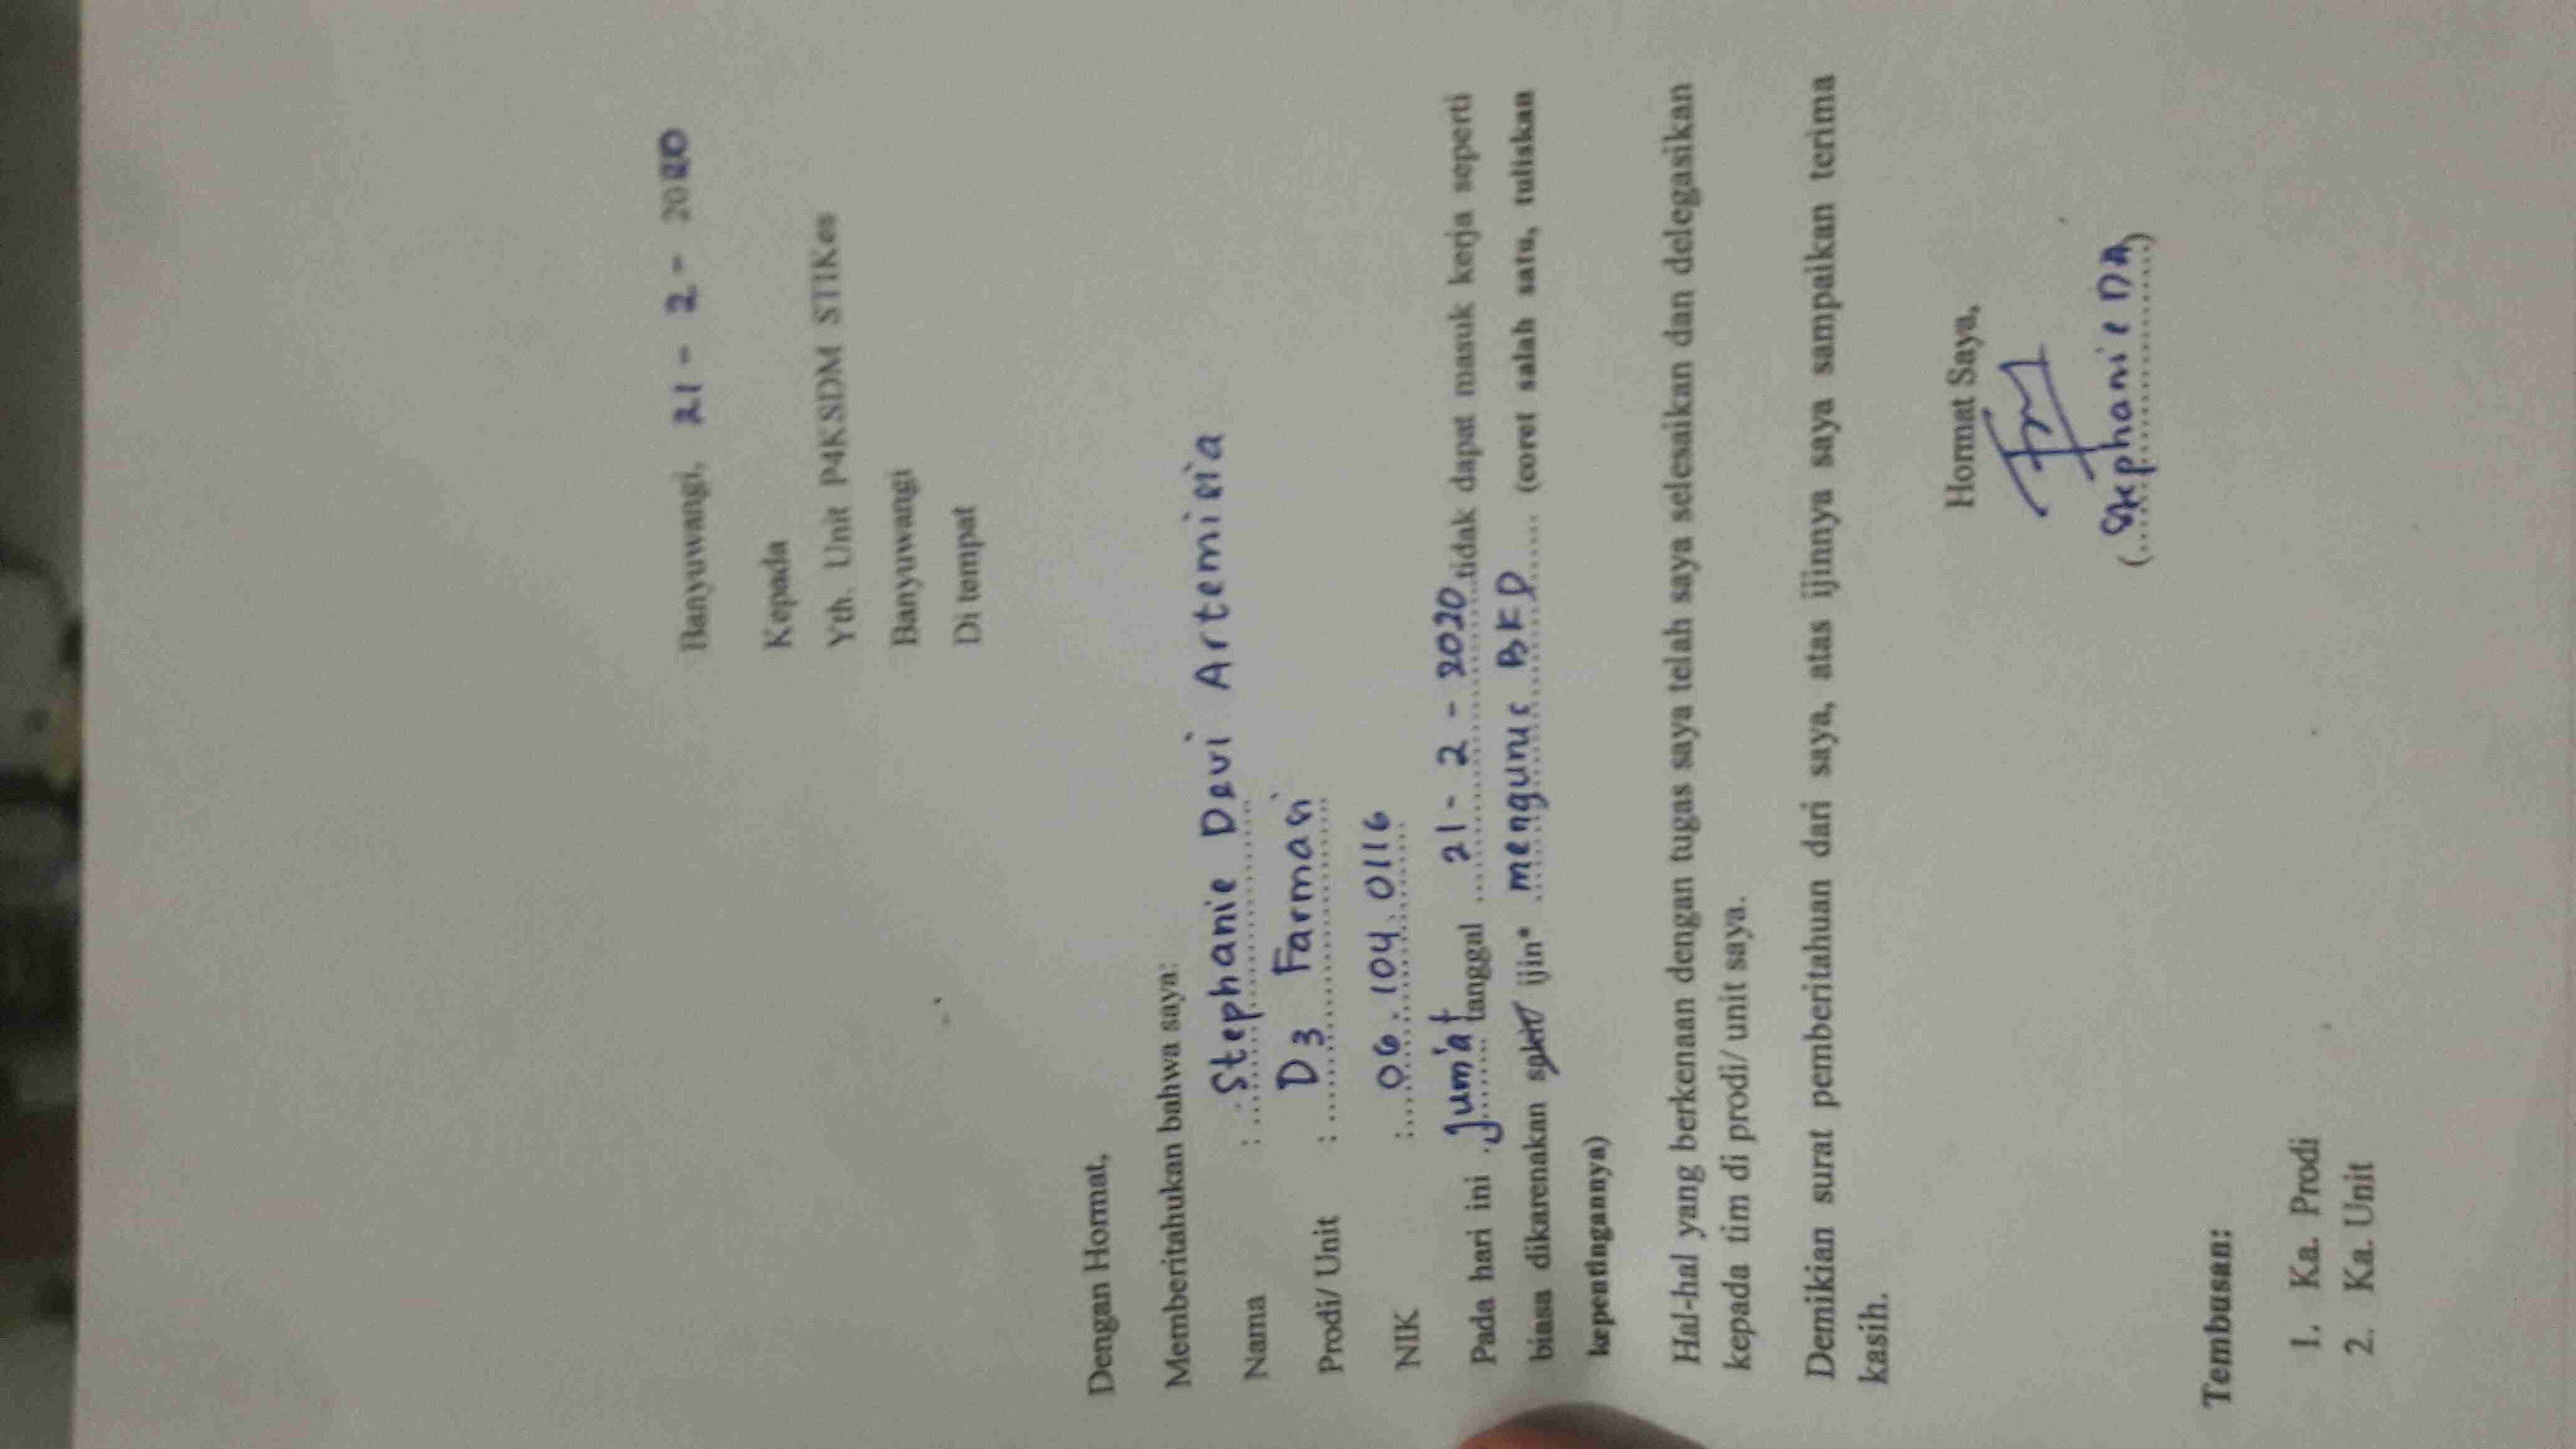 Banyuwangi, 21 - 2 - 2020
Kepada
Yth. Unit P4KSDM STIKes
Banyuwangi
Di tempat
Dengan Hormat,
Memberitahukan bahwa saya:
Nama : Stephanie Devi Artemisia
Prodi/ Unit : D3 Farmasi
NIK : 06.104.0116
Pada hari ini Jum'at tanggal 21 - 2 - 2020 tidak dapat masuk kerja seperti
biasa dikarenakan sakit/ ijin* mengurus BKD (coret salah satu, tuliskan
kepentingannya)
Hal-hal yang berkenaan dengan tugas saya telah saya selesaikan dan delegasikan
kepada tim di prodi/ unit saya.
Demikian surat pemberitahuan dari saya, atas ijinnya saya sampaikan terima
kasih.
Hormat Saya,
(Stephanie DA)
Tembusan:
1. Ka. Prodi
2. Ka. Unit